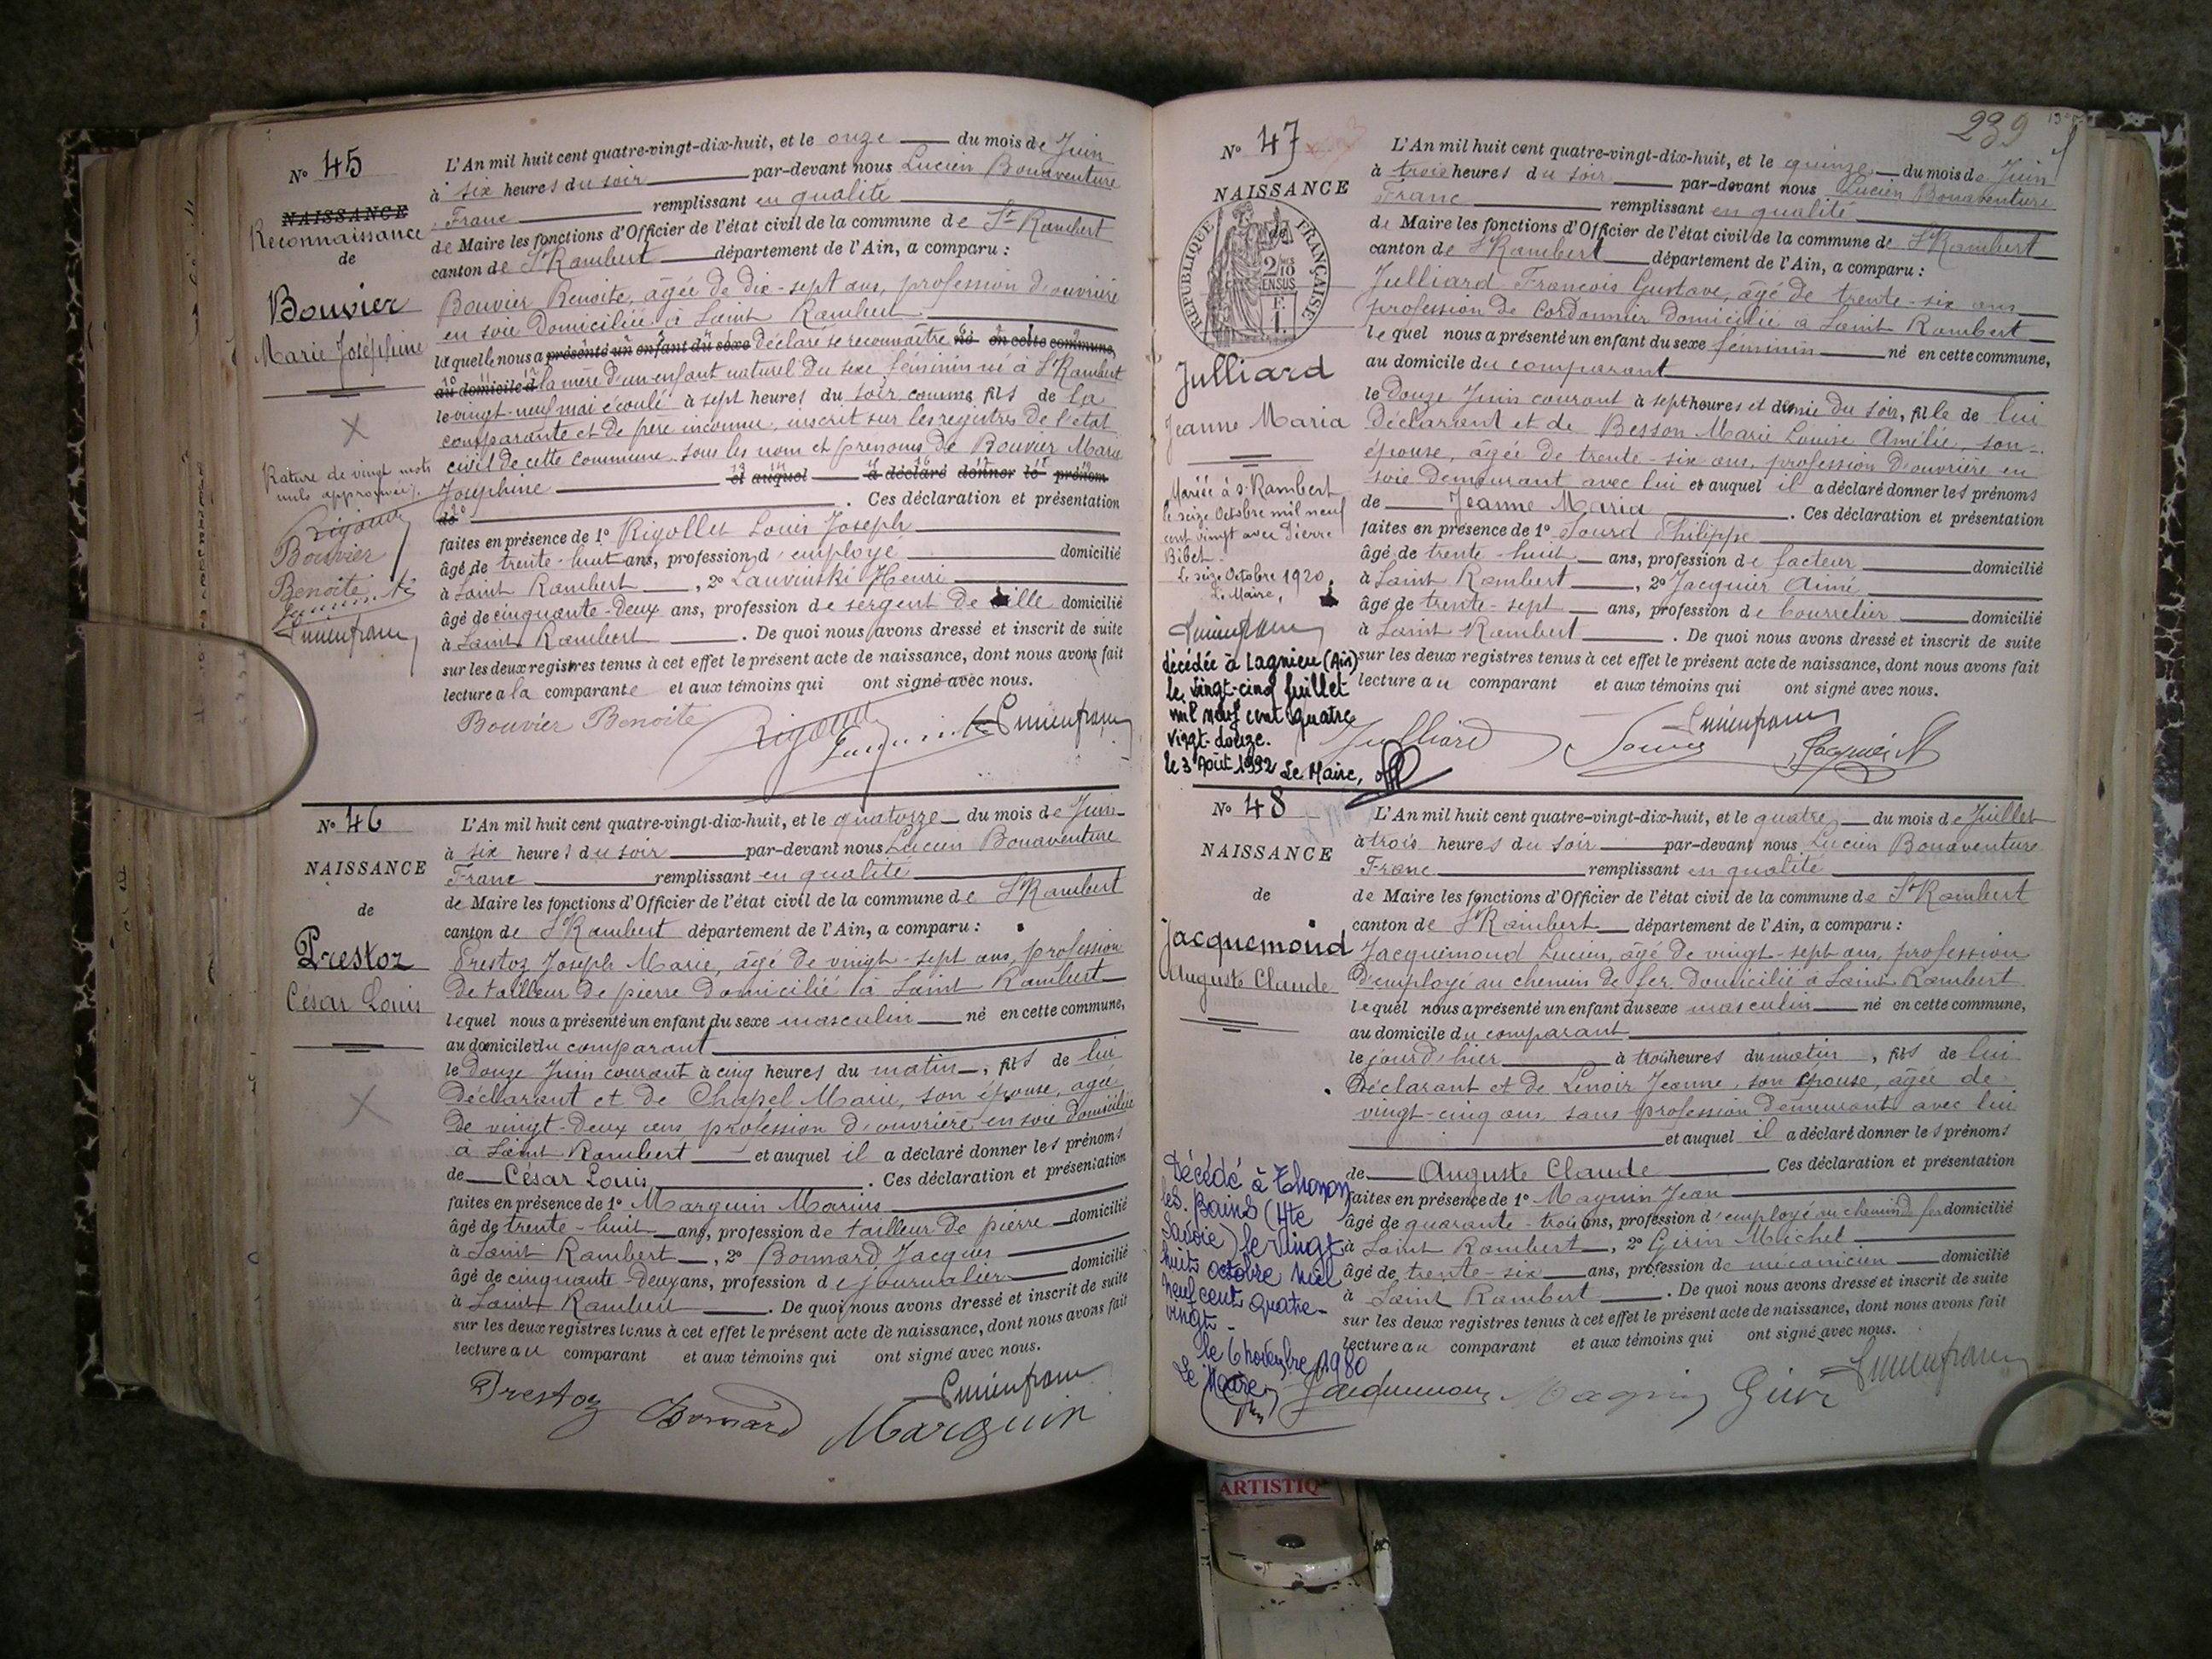 N° 45
NAISSANCE
Reconnaissance
de
Bouvier
Marie Joséphine
Rature de vingt mots
nuls approuvée.
Bouvier
Benoite
L'An mil huit cent quatre-vingt-dix-huit, et le onze du mois de Juin
à six heures du soir par-devant nous Lucien Bonaventure
Franc remplissant en qualité
de Maire les fonctions d'Officier de l'état civil de la commune de St Rambert
canton de St Rambert département de l'Ain, a comparu :
Bouvier Benoite, âgée de dix-sept ans, profession d'ouvrière
en soie Domiciliée à Saint Rambert
laquelle nous a présenté un enfant du sexe déclaré se reconnaître né en cette commune,
au domicile d la mère d'un enfant naturel du sexe féminin né à St Rambert
le vingt-neuf mai écoulé à sept heures du soir comme fils de la
comparante et de père inconnu, inscrit sur les registres de l'état
civil de cette commune sous les nom et prénoms de Bouvier Marie
Joséphine et auquel a déclaré donner le prénom
de . Ces déclaration et présentation
faites en présence de 1° Rigollet Louis Joseph
âgé de trente-huit ans, profession d'employé domicilié
à Saint Rambert , 2° Henri
âgé de cinquante-deux ans, profession de sergent de ville domicilié
à Saint Rambert . De quoi nous avons dressé et inscrit de suite
sur les deux registres tenus à cet effet le présent acte de naissance, dont nous avons fait
lecture a la comparante et aux témoins qui ont signé avec nous.
Bouvier Benoite
N° 46
NAISSANCE
de
Prestoz
César Louis
L'An mil huit cent quatre-vingt-dix-huit, et le quatorze du mois de Juin
à six heures du soir par-devant nous Lucien Bonaventure
Franc remplissant en qualité
de Maire les fonctions d'Officier de l'état civil de la commune de St Rambert
canton de St Rambert département de l'Ain, a comparu :
Prestoz Joseph Marie, âgé de vingt-sept ans, profession
de tailleur de pierre domicilié à Saint Rambert
lequel nous a présenté un enfant du sexe masculin né en cette commune,
au domicile du comparant
le douze Juin courant à cinq heures du matin, fils de lui
Déclarant et de Chapel Marie, son épouse, agée
de vingt-deux ans profession d'ouvrière en soie domiciliée
à Saint Rambert et auquel il a déclaré donner les prénoms
de César Louis . Ces déclaration et présentation
faites en présence de 1° Marguin Marius
âgé de trente-huit ans, profession de tailleur de pierre domicilié
à Saint Rambert , 2° Bonnard Jacques
âgé de cinquante-deux ans, profession de journalier domicilié
à Saint Rambert . De quoi nous avons dressé et inscrit de suite
sur les deux registres tenus à cet effet le présent acte de naissance, dont nous avons fait
lecture au comparant et aux témoins qui ont signé avec nous.
Prestoz Bonnard Marguin
239
N° 47
NAISSANCE
de
RÉPUBLIQUE FRANÇAISE
2/10 EN SUS
1 F.
Julliard
Jeanne Maria
Mariée à St Rambert
le seize Octobre mil neuf
cent vingt avec Pierre
Bibet
Le seize Octobre 1920.
Le Maire,
décédée à Lagnieu (Ain)
le vingt-cinq juillet
mil neuf cent quatre
vingt-douze.
le 3 Août 1992 Le Maire,
L'An mil huit cent quatre-vingt-dix-huit, et le quinze du mois de Juin
à trois heures du soir par-devant nous Lucien Bonaventure
Franc remplissant en qualité
de Maire les fonctions d'Officier de l'état civil de la commune de St Rambert
canton de St Rambert département de l'Ain, a comparu :
Julliard Francois Gustave, âgé de trente-six ans
profession de Cordonnier domicilié a Saint Rambert
lequel nous a présenté un enfant du sexe féminin né en cette commune,
au domicile du comparant
le Douze Juin courant à sept heures et demie du soir, fille de lui
Déclarant et de Besson Marie Louise Amélie, son
épouse, âgée de trente-six ans, profession d'ouvrière en
soie demeurant avec lui et auquel il a déclaré donner les prénoms
de Jeanne Maria . Ces déclaration et présentation
faites en présence de 1° Sourd Philippe
âgé de trente-huit ans, profession de facteur domicilié
à Saint Rambert , 2° Jacquier Aimé
âgé de trente-sept ans, profession de bourrelier domicilié
à Saint Rambert . De quoi nous avons dressé et inscrit de suite
sur les deux registres tenus à cet effet le présent acte de naissance, dont nous avons fait
lecture au comparant et aux témoins qui ont signé avec nous.
Julliard
N° 48
NAISSANCE
de
Jacquemond
Auguste Claude
Décédé à Thonon
les Bains (Hte
Savoie) le vingt
huit octobre mil
neuf cent quatre-
vingt
le 6 novembre 1980
Le Maire,
L'An mil huit cent quatre-vingt-dix-huit, et le quatre du mois de Juillet
à trois heures du soir par-devant nous Lucien Bonaventure
Franc remplissant en qualité
de Maire les fonctions d'Officier de l'état civil de la commune de St Rambert
canton de St Rambert département de l'Ain, a comparu :
Jacquemond Lucien, âgé de vingt-sept ans, profession
d'employé au chemin de fer Domicilié à Saint Rambert
lequel nous a présenté un enfant du sexe masculin né en cette commune,
au domicile du comparant
le jour d'hier à trois heures du matin, fils de lui
Déclarant et de Lenoir Jeanne, son épouse, âgée de
vingt-cinq ans, sans profession demeurant avec lui
et auquel il a déclaré donner les prénoms
de Auguste Claude Ces déclaration et présentation
faites en présence de 1° Magnin Jean
âgé de quarante-trois ans, profession d'employé au chemin d fer domicilié
à Saint Rambert , 2° Girin Michel
âgé de trente-six ans, profession de mécanicien domicilié
à Saint Rambert . De quoi nous avons dressé et inscrit de suite
sur les deux registres tenus à cet effet le présent acte de naissance, dont nous avons fait
lecture au comparant et aux témoins qui ont signé avec nous.
Jacquemond Magnin
ARTISTIQ